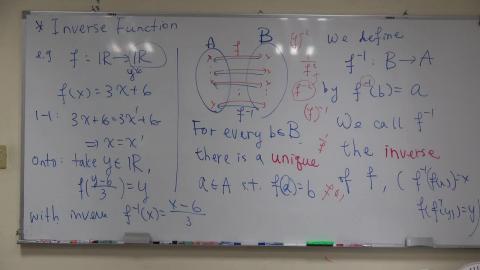 * Inverse Function
e.g f: ℝ→ℝ
f(x) = 3x+6
1-1: 3x+6=3x'+6
⇒ x = x'
Onto: take y∈ℝ,
f((y-6)/3) = y
with inverse f⁻¹(x) = (x-6)/3
A B
f
f⁻¹
For every b∈B
there is a unique
a∈A s.t. f(a)=b
we define
f⁻¹: B→A
by f⁻¹(b)=a
We call f⁻¹
the inverse
of f, ( f⁻¹(f(x))=x
f(f⁻¹(y))=y)